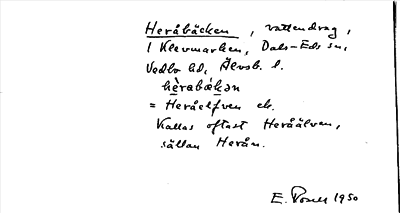 Heråbäcken, vattendrag,
i Klevmarken, Dals-Eds sn,
Vedbo hd, Älvsb. l.
hèrabækən
= Heråelfven ek.
Kallas oftast Heråälven,
sällan Herån.
E. 1950